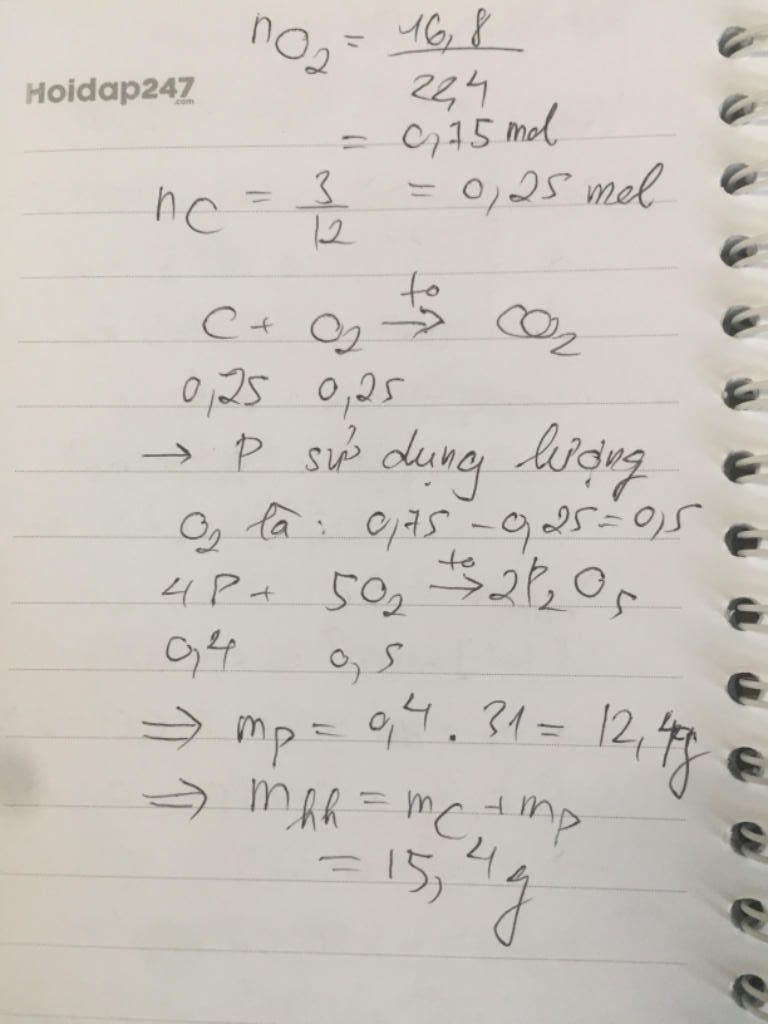 nO2 = 16,8
Hoidap247
.com
22,4
= 0,75 mol
nC = 3/12 = 0,25 mol
C + O2 →to CO2
0,25 0,25
→ P sử dụng lượng
O2 là : 0,75 - 0,25 = 0,5
4P + 5O2 →to 2P2O5
0,4 0,5
⇒ mP = 0,4 . 31 = 12,4g
⇒ mhh = mC + mP
= 15,4g